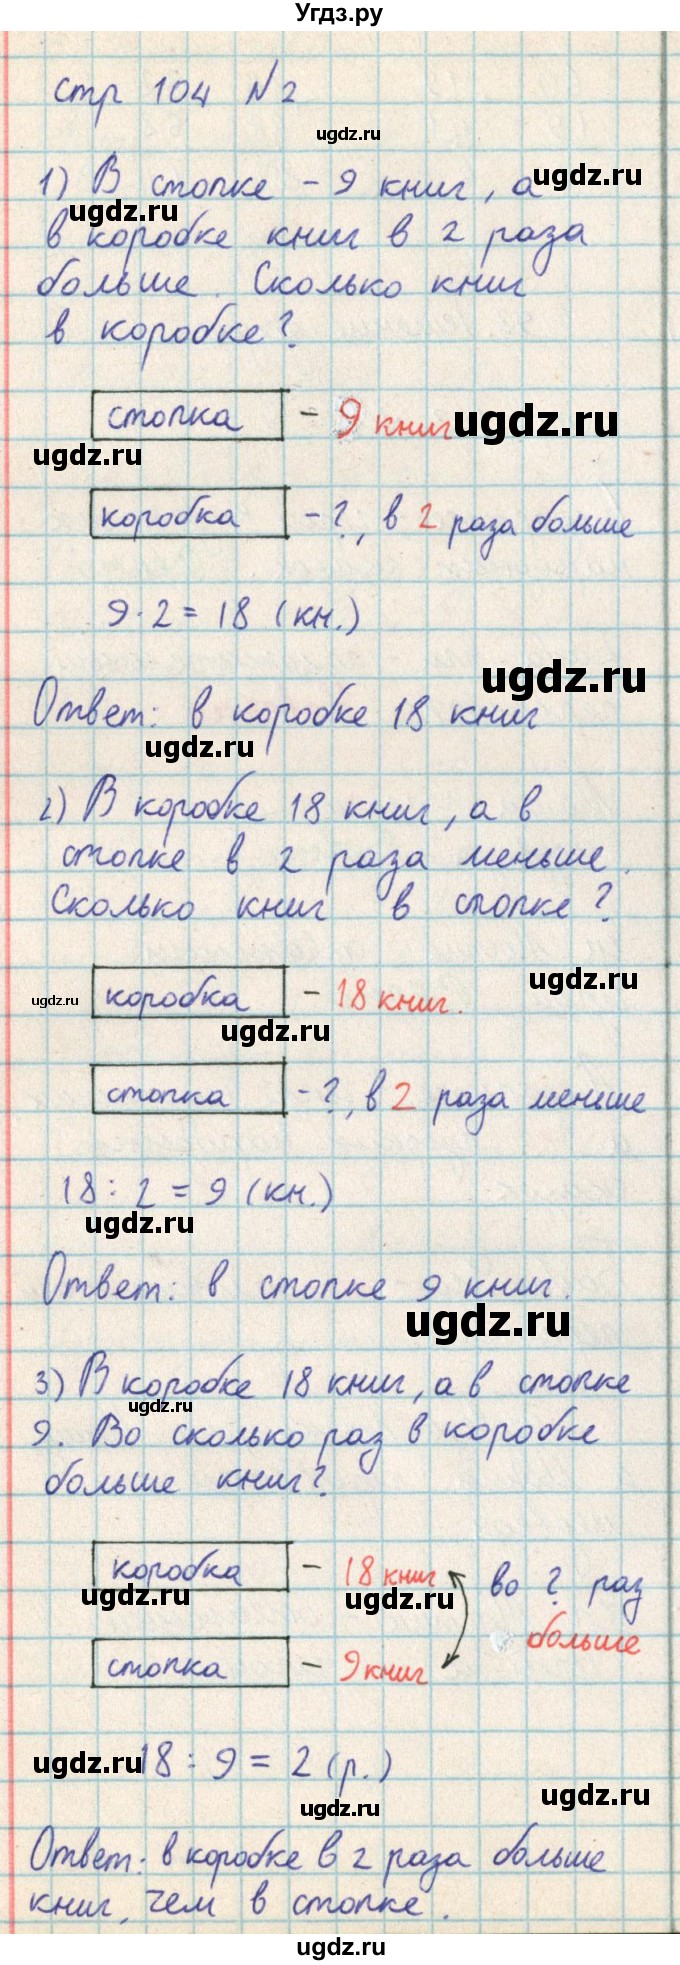 Угдз.ру
стр 104 №2
ugdz.ru
1) В стопке - 9 книг, а
ugdz.ru
ugdz.ru
в коробке книг в 2 раза
больше. Сколько книг
в коробке?
стопка - 9 книг
ugdz.ru
ugdz.ru
коробка - ?, в 2 раза больше
9·2=18 (кн.)
ugdz.ru
Ответ: в коробке 18 книг
ugdz.ru
2) В коробке 18 книг, а в
стопке в 2 раза меньше.
Сколько книг в стопке?
ugdz.ru
ugdz.ru
коробка - 18 книг.
ugdz.ru
стопка - ?, в 2 раза меньше
18:2=9 (кн.)
ugdz.ru
Ответ: в стопке 9 книг.
ugdz.ru
3) В коробке 18 книг, а в стопке
ugdz.ru
9. Во сколько раз в коробке
больше книг?
коробка - 18 книг во ? раз
ugdz.ru
ugdz.ru
больше
стопка - 9 книг
18:9=2 (р.)
ugdz.ru
ugdz.ru
ugdz.ru
Ответ: в коробке в 2 раза больше
книг, чем в стопке.
ugdz.ru